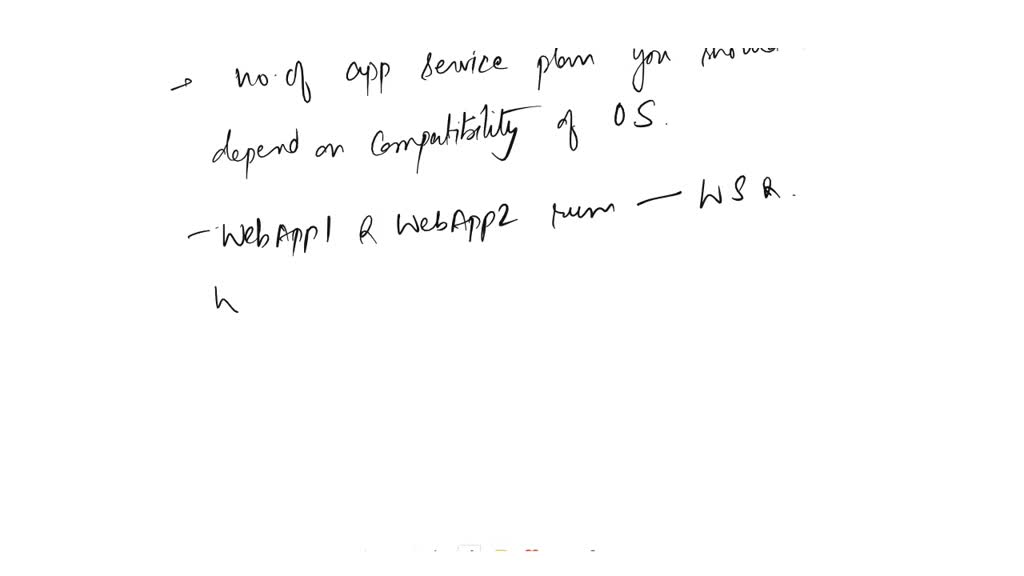 → no. of app service plan you
depend on Compatibility of OS.
- WebApp1 & WebApp2 runn — WS &.
h